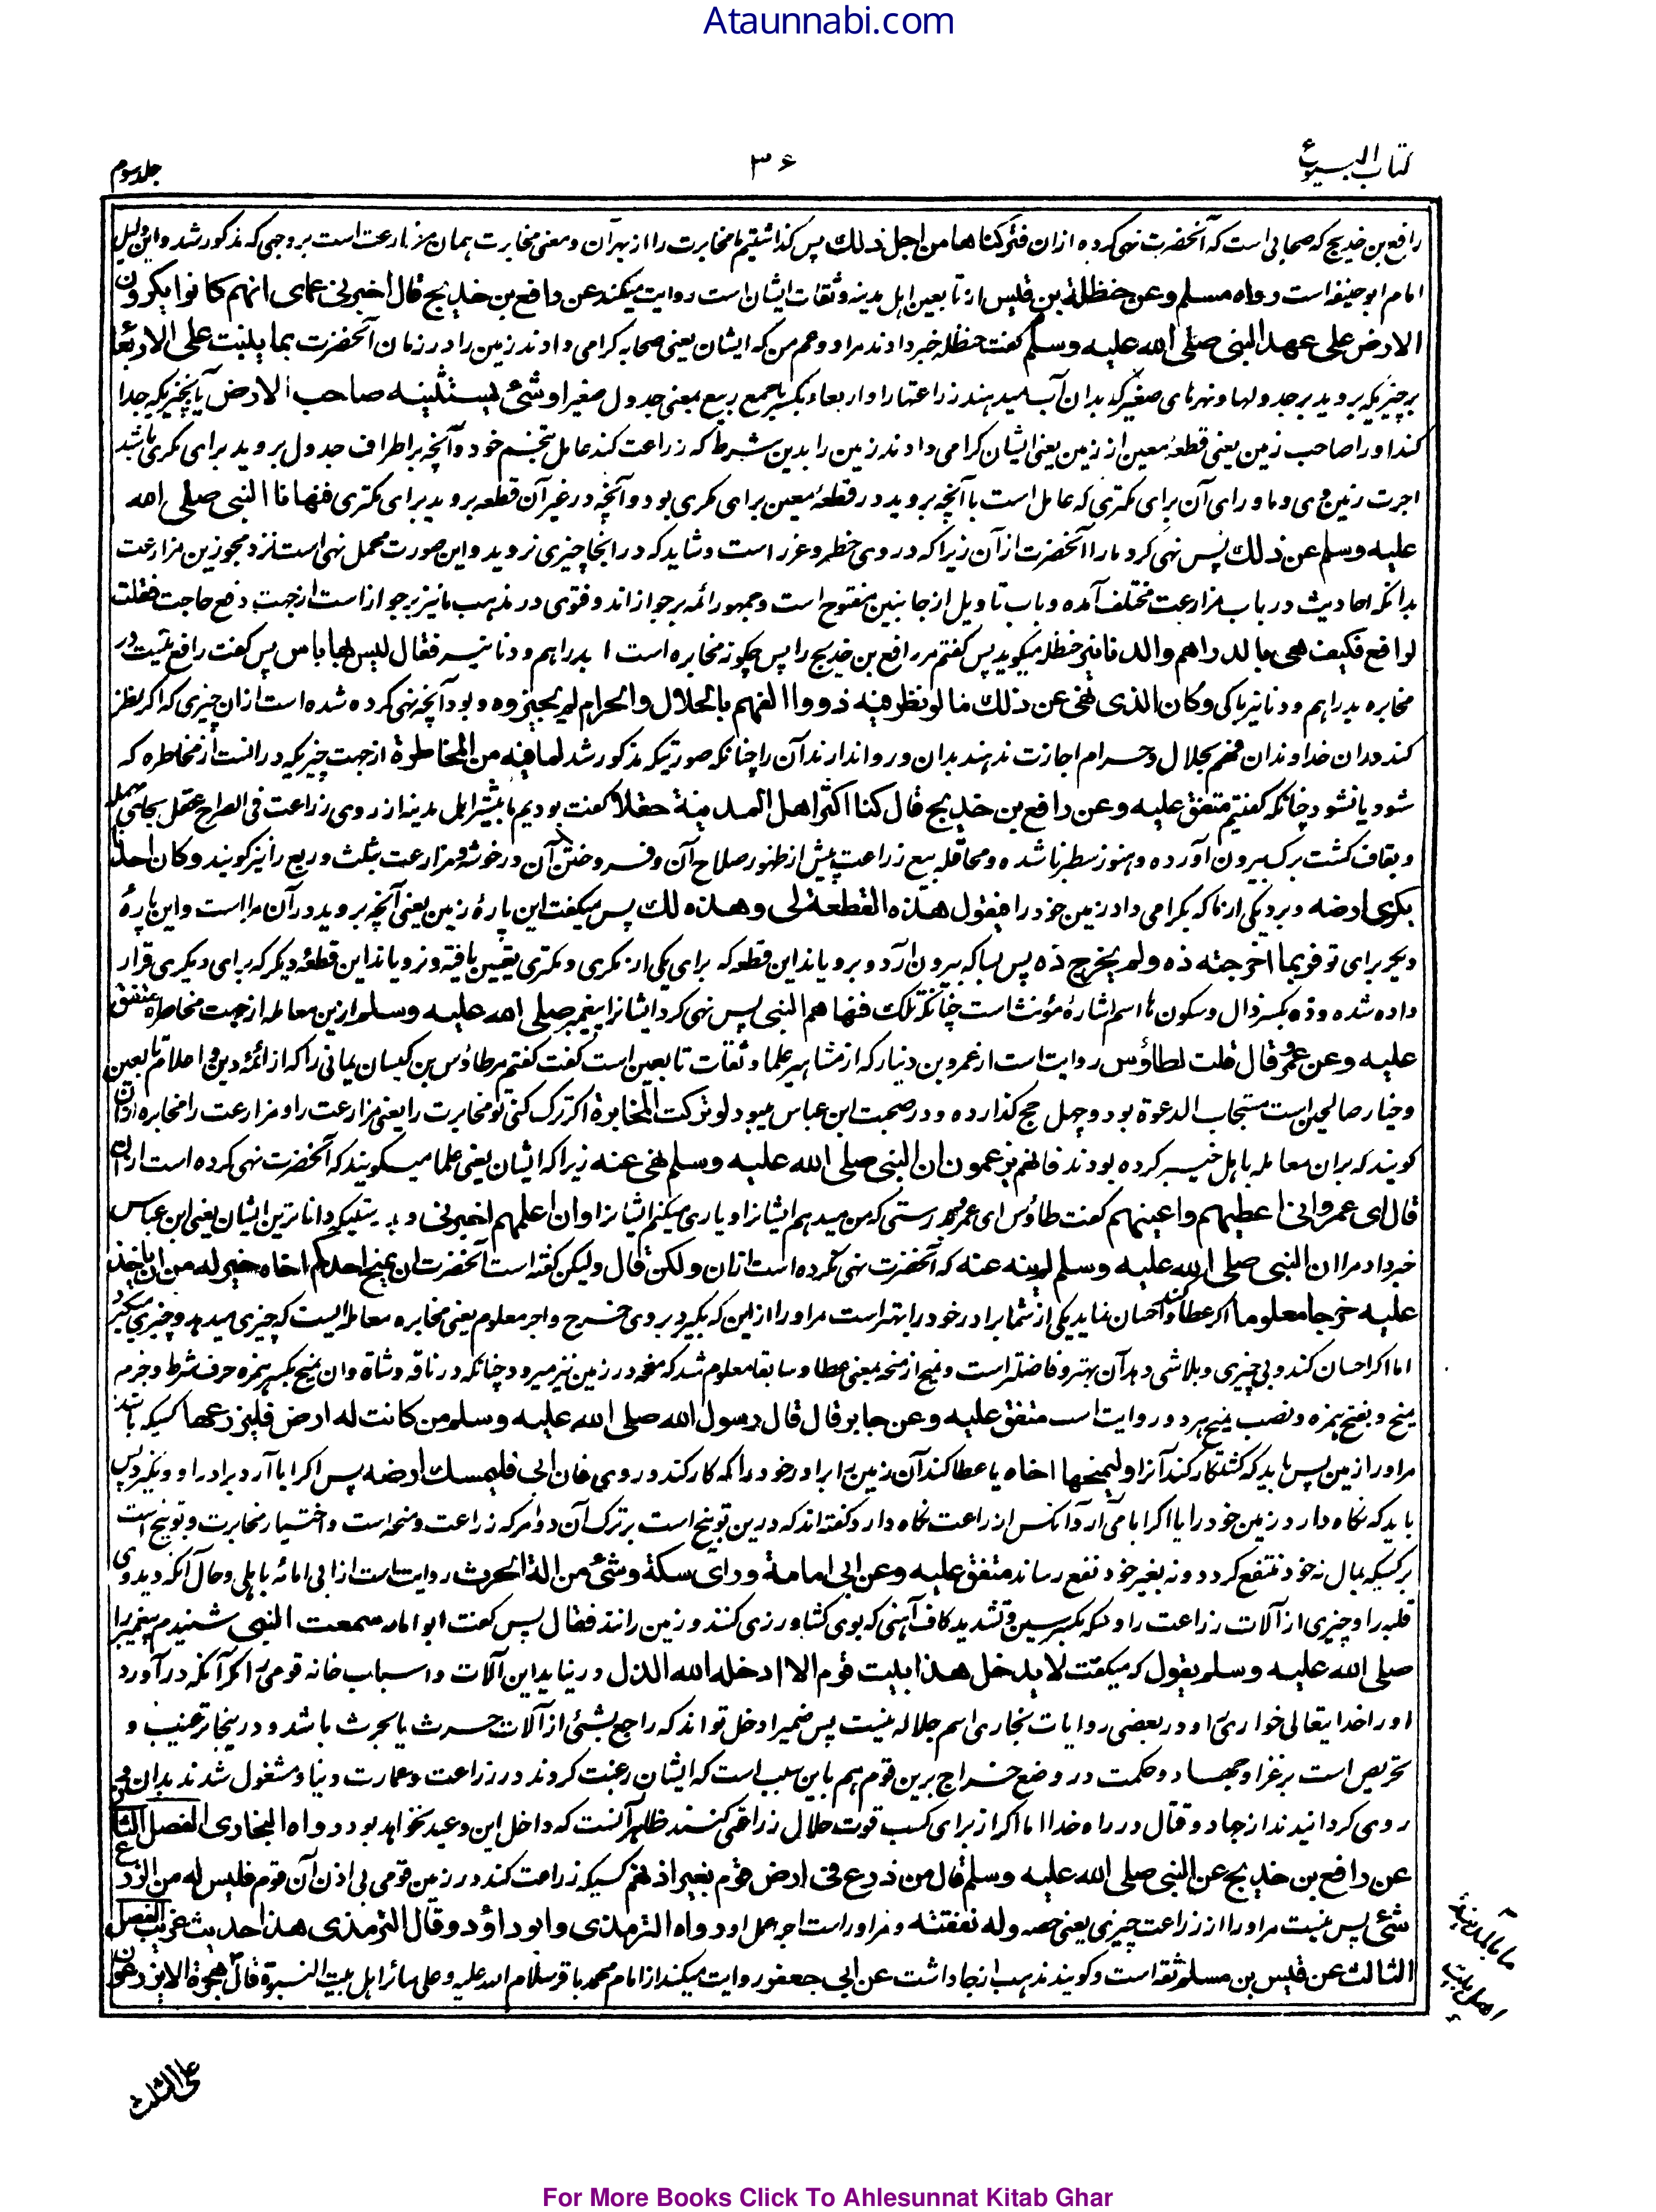 Ataunnabi.com
کتاب البیوع
۳۶
جلد سوم
رافع بن خدیج که صحابی است که آنحضرت نهی کرده ازان فترکناها من اجل ذلك پس گذاشتیم ما مخابرت را از بهر آن و معنی مخابرت همان مزارعت است بر وجهی که مذکور شد و این دلیل
امام ابو حنیفه است رواه مسلم وعن حنظلة بن قیس از تابعین اهل مدینه و ثقات ایشان است روایت میکند عن رافع بن خدیج قال اخبرنی عمای انهم کانوا یکرون
الارض علی عهد النبی صلی الله علیه وسلم گفت حنظله خبر دادند مرا دو عم من که ایشان یعنی صحابه کرا می دادند زمین را در زمان آنحضرت بما ینبت علی الاربعا
بر چیزیکه بروید بر جدولها و نهرهای صغیر که بدان آب میدهند زراعتها را و اربعاء بکسر با جمع ربیع بمعنی جدول صغیر او شئ یستثنیه صاحب الارض یا بچیزیکه جدا
کند او را صاحب زمین یعنی قطعهٔ معین از زمین یعنی ایشان کرا می دادند زمین را بدین شرط که زراعت کند عامل بتخم خود و آنچه بر اطراف جدول بروید برای مکری باشد
اجرت زمین وی و ماورای آن برای مکتری که عامل است یا آنچه بروید در قطعهٔ معین برای مکری بود و آنچه در غیر آن قطعه بروید برای مکتری فنهانا النبی صلی الله
علیه وسلم عن ذلك پس نهی کرد ما را آنحضرت ازان زیرا که در وی خطر و غرر است و شاید که در انجا چیزی نروید و این صورت محمل نهی است نزد مجوزین مزارعت
بدانکه احادیث در باب مزارعت مختلف آمده و باب تاویل از جانبین مفتوح است و جمهور ائمه بر جواز اند و فتوی در مذهب ما نیز بر جواز است از جهت دفع حاجت فقلت
لرافع فکیف هی بالدراهم والدنانیر حنظله میگوید پس گفتم مر رافع بن خدیج را پس چگونه مخابره است بدراهم و دنانیر فقال لیس بها باس پس گفت رافع نیست در
مخابره بدراهم و دنانیر باکی وکان الذی نهی عن ذلك ما لو نظر فیه ذووا الفهم بالحلال والحرام لم یجیزوه و بود آنچه نهی کرده شده است ازان چیزی که اگر نظر
کند دران خداوندان فهم بحلال و حرام اجازت ندهند بدان و روا ندارند آن را چنانکه صورتیکه مذکور شد لما فیه من المخاطرة از جهت چیزیکه در آنست از مخاطره که
شود یا نشود چنانکه گفتیم متفق علیه وعن رافع بن خدیج قال کنا اکثر اهل المدینة حقلا گفت بودیم ما بیشتر اهل مدینه از روی زراعت فی الصراح حقل بحای مهمله
و بقاف کشت برگ بیرون آورده و هنوز سطبر ناشده و محاقله بیع زراعت پیش از ظهور صلاح آن و فروختن آن در خوشه و مزارعت بثلث و ربع را نیز گویند وکان احدنا
یکری ارضه و بود یکی از ما که بکرا می داد زمین خود را فیقول هذه القطعة لی وهذه لك پس میگفت این پارهٔ زمین یعنی آنچه بروید در آن مرا است و این پارهٔ
دیگر برای تو فربما اخرجت ذه ولم یخرج ذه پس بسا که بیرون آرد و برویاند این قطعه که برای یکی از مکری و مکتری تعیین یافته و نرویاند این قطعهٔ دیگر که برای دیگری قرار
داده شده و ذه بکسر ذال و سکون ها اسم اشارهٔ مؤنث است چنانکه تلک فنهاهم النبی پس نهی کرد ایشانرا پیغمبر صلی الله علیه وسلم ازین معامله از جهت مخاطره متفق
علیه وعن عمرو قال قلت لطاؤس روایت است از عمرو بن دینار که از مشاهیر علما و ثقات تابعین است گفت گفتم مر طاؤس بن کیسان یمانی را که از ائمهٔ دین و اعلام تابعین
و خیار صالحین است مستجاب الدعوة بود و چهل حج گذارده و در صحبت ابن عباس میبود لو ترکت المخابرة اگر ترک کنی تو مخابرت را یعنی مزارعت را و مزارعت را مخابره ازان
گویند که بران معامله باهل خیبر کرده بودند فانهم یزعمون ان النبی صلی الله علیه وسلم نهی عنه زیرا که ایشان یعنی علما میگویند که آنحضرت نهی کرده است ازان
قال ای عمرو انی اعطیهم واعینهم گفت طاؤس ای عمرو بدرستی که من میدهم ایشانرا و یاری میکنم ایشانرا وان اعلمهم اخبرنی و بدرستیکه داناترین ایشان یعنی ابن عباس
خبر داد مرا ان النبی صلی الله علیه وسلم لم ینه عنه که آنحضرت نهی نکرده است ازان ولکن قال ولیکن گفته است آنحضرت ان یمنح احدکم اخاه خیر له من ان یاخذ
علیه خرجا معلوما اگر عطا کند و احسان نماید یکی از شما برادر خود را بهتر است مر او را ازین که بگیرد بر وی خرج و اجر معلوم یعنی مخابره معامله ایست که چیزی میدهد و چیزی میگیرد
اما اگر احسان کند و بی چیزی و بلاشی دهد آن بهتر و فاضلتر است و یمنح از منحه بمعنی عطا و سابقا معلوم شد که منحه در زمین نیز میرود چنانکه در ناقه و شاة وان یمنح بکسر همزه حرف شرط و جزم
یمنح و بفتح همزه و نصب یمنح هر دو روایت است متفق علیه وعن جابر قال قال رسول الله صلی الله علیه وسلم من کانت له ارض فلیزرعها کسیکه باشد
مر او را زمین پس باید که کشتکار کند آنرا ولیمنحها اخاه یا عطا کند آن زمین را برادر خود را که کار کند در وی فان ابی فلیمسك ارضه پس اگر ابا آرد برادر او و نگیرد پس
باید که نگاه دارد زمین خود را یا اگر ابا می آرد آنکس از زراعت نگاه دارد گفته اند که درین توبیخ است بر ترک آن دو امر که زراعت و منحه است و اختیار مخابرت و توبیخ است
بر کسیکه بمال نه خود منتفع گردد و نه بغیر خود نفع رساند متفق علیه وعن ابی امامة ورای سکة وشئ من الة الحرث روایت است از ابی امامهٔ باهلی و حال آنکه دید وی
قلبه را و چیزی از آلات زراعت را و سکه بکسر سین و تشدید کاف آهنی که بوی کشاورزی کنند و زمین رانند فقال پس گفت ابو امامه سمعت النبی شنیدم پیغمبر را
صلی الله علیه وسلم یقول که میگفت لا یدخل هذا بیت قوم الا ادخله الله الذل در نیاید این آلات و اسباب خانه قومی را مگر آنکه در آورد
او را خدایتعالی خواری را و در بعضی روایات بخاری اسم جلاله نیست پس ضمیر ادخل تواند که راجع بشئی از آلات حرث یا بحرث باشد و درینجا ترغیب و
تحریص است بر غزا و جهاد و حکمت در وضع خراج برین قوم هم باین سبب است که ایشان رغبت کردند در زراعت و عمارت دنیا و مشغول شدند بدان و
روی گردانیدند از جهاد و قتال در راه خدا اما اگر از برای کسب قوت حلال زراعتی کنند ظاهر آنست که داخل این وعید نخواهد بود رواه البخاری الفصل الثانی
عن رافع بن خدیج عن النبی صلی الله علیه وسلم قال من زرع فی ارض قوم بغیر اذنهم کسیکه زراعت کند در زمین قومی بی اذن آن قوم فلیس له من الزرع
شئ پس نیست مر او را از زراعت چیزی یعنی حصه وله نفقته و مر او راست اجر عمل او رواه الترمذی وابو داؤد وقال الترمذی هذا حدیث غریب الفصل
الثالث عن قیس بن مسلم ثقه است و گویند مذهب ارجا داشت عن ابی جعفر روایت میکند از امام محمد باقر سلام الله علیه و علی سائر اهل بیت النبوة قال ما بالمدینة اهل بیت هجرة الا یزرعون
علی الثلث
For More Books Click To Ahlesunnat Kitab Ghar